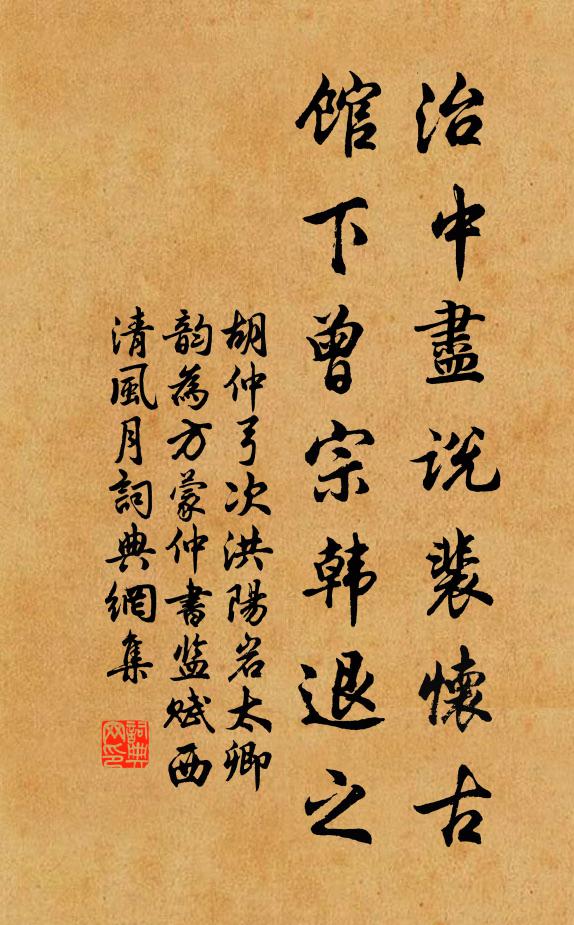 治中盡説裴懷古
馆下曾宗韩退之
胡仲弓次洪陽岩太卿
韵為方蒙仲書监赋西
清風月詞典網集
詞典
网印